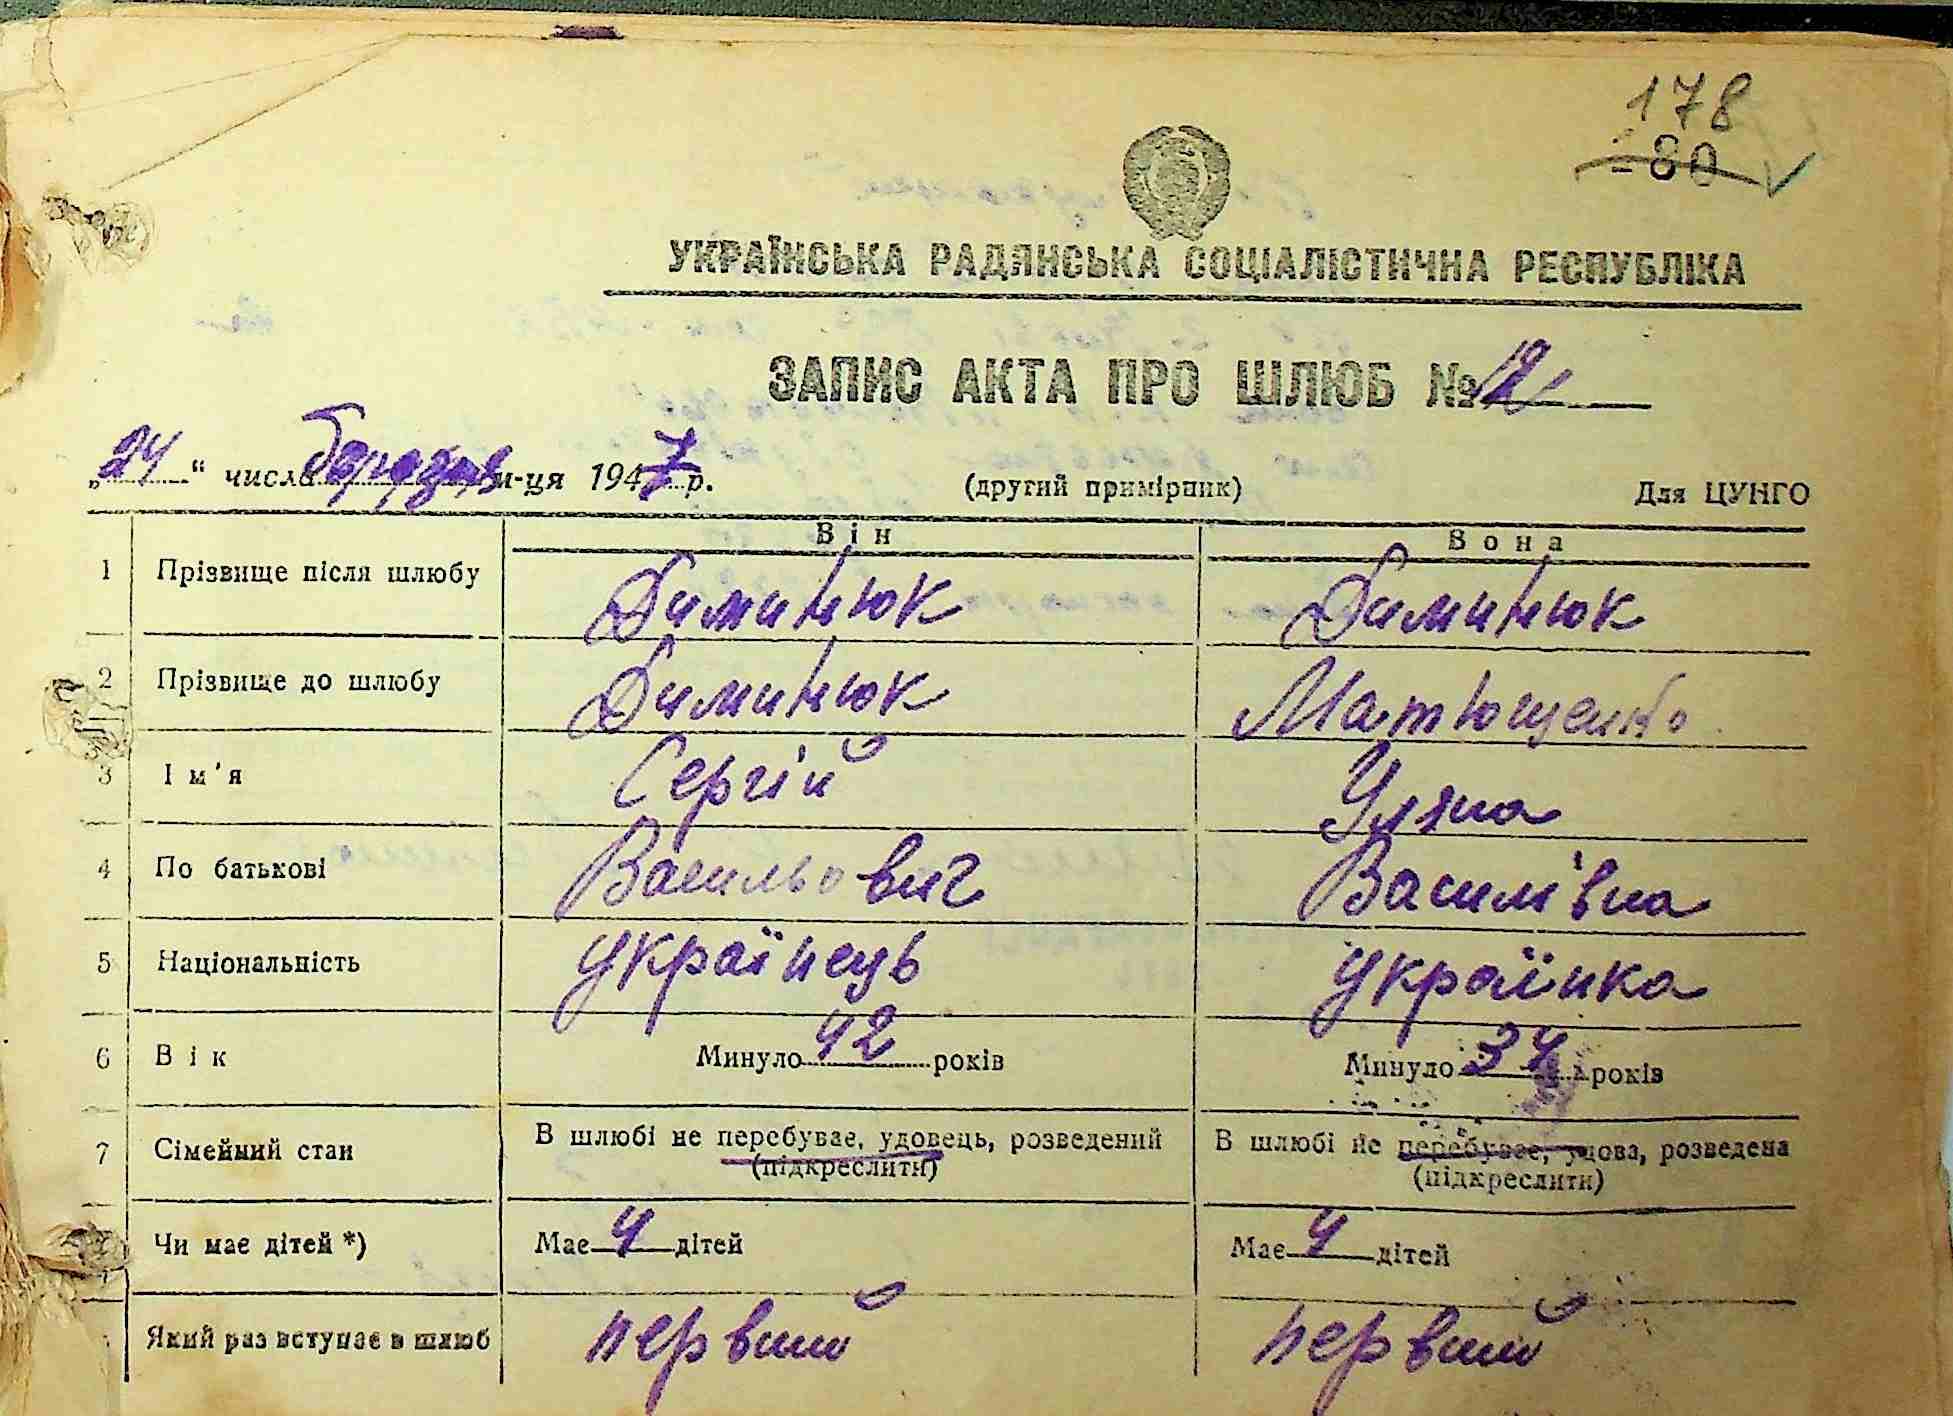 178
80
УКРАЇНСЬКА РАДЯНСЬКА СОЦІАЛІСТИЧНА РЕСПУБЛІКА
ЗАПИС АКТА ПРО ШЛЮБ №
„24“ числа березня м-ця 1947 р. (другий примірник) Для ЦУНГО
Він Вона
1 Прізвище після шлюбу Диминюк Диминюк
2 Прізвище до шлюбу Диминюк Матющенко
3 Ім'я Сергій Уляна
4 По батькові Васильович Василівна
5 Національність українець українка
6 Вік Минуло 42 років Минуло 34 років
7 Сімейний стан В шлюбі не перебуває, удовець, розведений В шлюбі не перебуває, удова, розведена
(підкреслити) (підкреслити)
Чи має дітей *) Має 4 дітей Має 4 дітей
Який раз вступає в шлюб первий первий